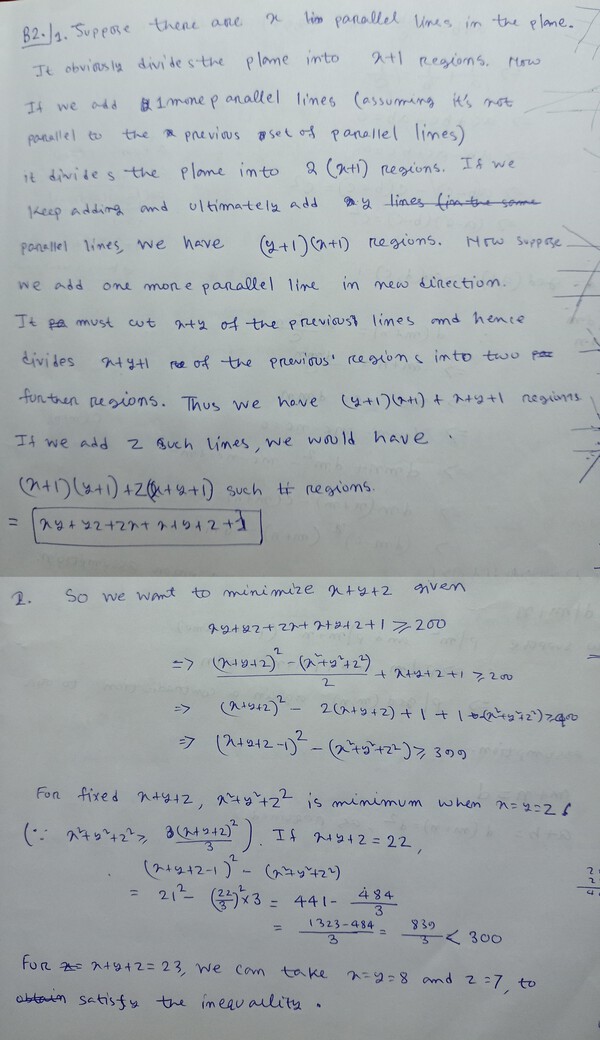 B2./1. Suppose there are x parallel lines in the plane.
It obviously divides the plane into x+1 regions. Now
If we add 1 more parallel lines (assuming it's not
parallel to the previous set of parallel lines)
it divides the plane into 2(x+1) regions. If we
keep adding and ultimately add y lines (in the same
parallel lines, we have (y+1)(x+1) regions. Now suppose
we add one more parallel line in new direction.
It must cut x+y of the previous lines and hence
divides x+y+1 of the previous regions into two
further regions. Thus we have (y+1)(x+1) + x+y+1 regions
If we add z such lines, we would have
(x+1)(y+1)+z(x+y+1) such regions.
= xy+yz+zx+x+y+z+1
2. So we want to minimize x+y+z given
xy+yz+zx+x+y+z+1 ≥ 200
=> ((x+y+z)² - (x²+y²+z²))/2 + x+y+z+1 ≥ 200
=> (x+y+z)² - 2(x+y+z) + 1 + 1 - (x²+y²+z²) ≥ 400
=> (x+y+z-1)² - (x²+y²+z²) ≥ 399
For fixed x+y+z, x²+y²+z² is minimum when x=y=z
(∵ x²+y²+z² ≥ (x+y+z)²/3). If x+y+z=22,
(x+y+z-1)² - (x²+y²+z²)
= 21² - (22/3)²×3 = 441 - 484/3
= (1323-484)/3 = 839/3 < 300
For x+y+z=23, we can take x=y=8 and z=7, to
obtain satisfy the inequality.